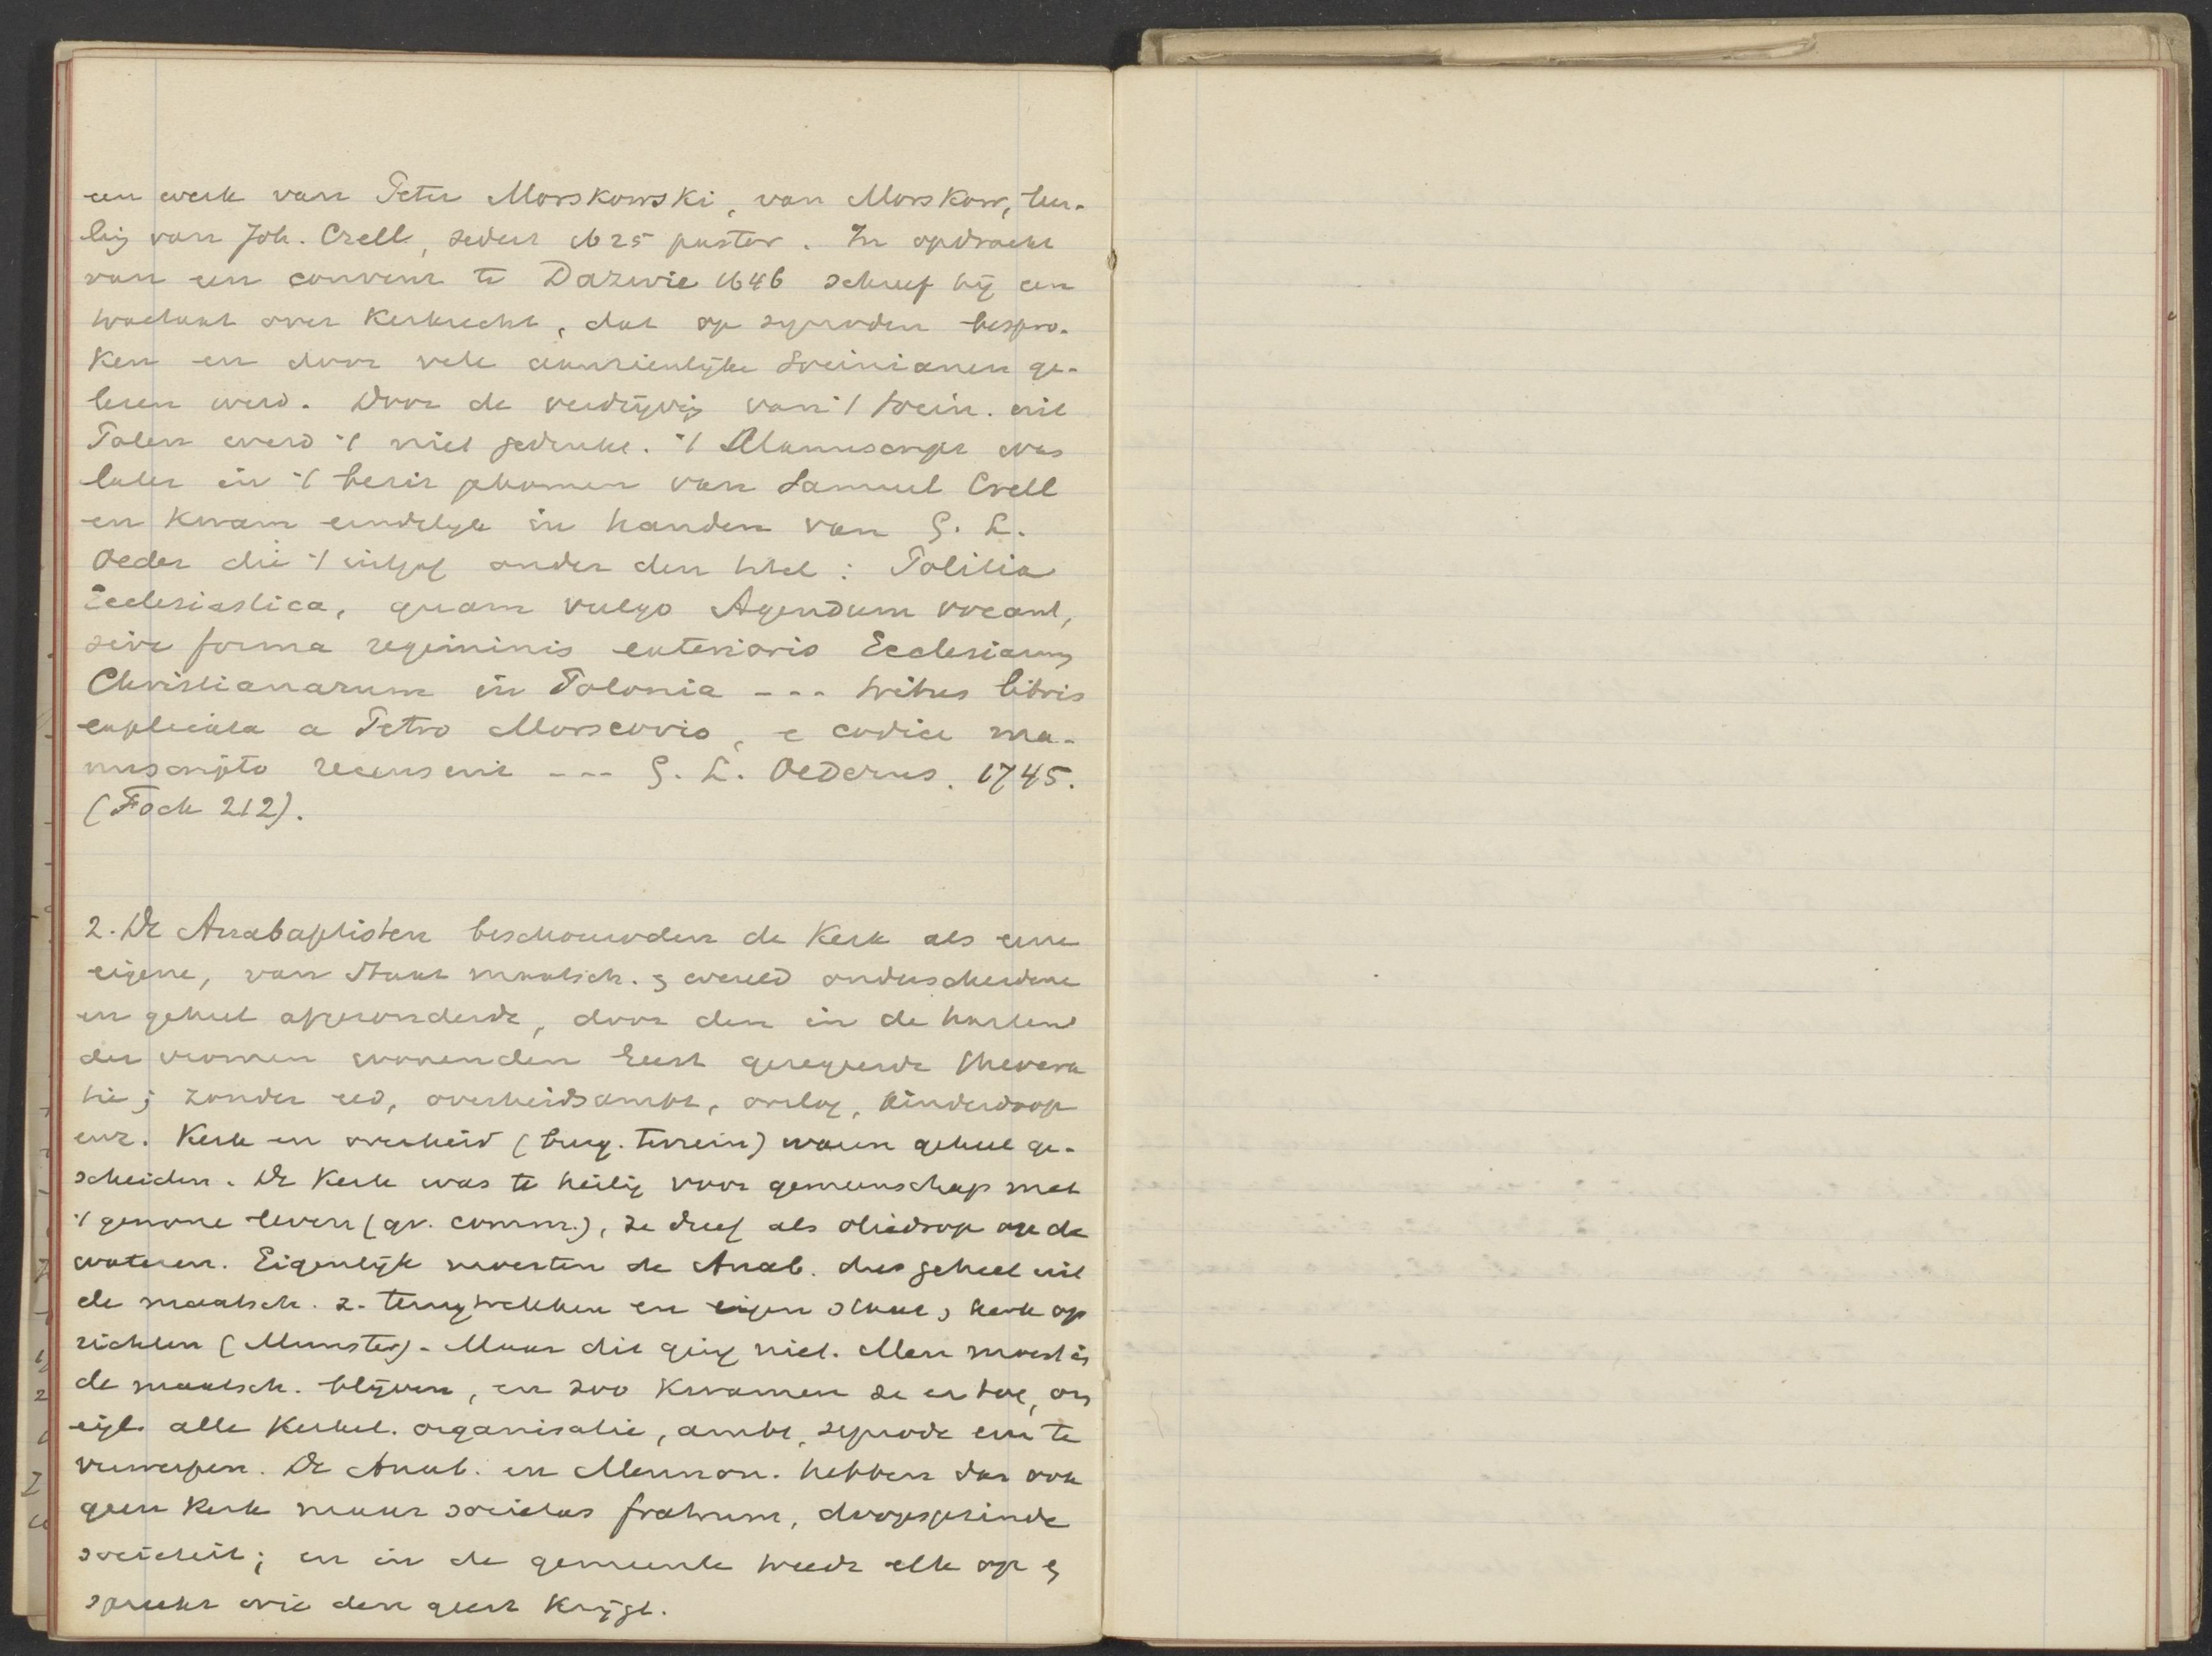 een werk van Peter Morskowski, van Morskow, leer-
ling van Joh. Crell, sedert 1625 pastor. In opdracht
van een convent te Dazwie 1646 schreef hij een
tractaat over Kerkrecht, dat op synoden bespro-
ken en door vele aanzienlijke Socinianen ge-
lezen werd. Door de verdrijving van 't Socin. uit
Polen werd 't niet gedrukt. 't Manuscript was
later in 't bezit gekomen van Samuel Crell
en kwam eindelijk in handen van G. L.
Oeder die 't uitgaf onder den titel: Politia
Ecclesiastica, quam vulgo Agendum vocant,
sive forma regiminis exterioris Ecclesiarum
Christianarum in Polonia --- tribus libris
explicata a Petro Morscovio, e codice ma-
nuscripto recensuit --- G. L. Oederus. 1745.
(Fock 212).
2. De Anabaptisten beschouwden de Kerk als eene
eigene, van Staat maatsch. & wereld onderscheidene
en geheel afgezonderde, door den in de harten
der vromen wonenden Geest geregeerde theocra
tie; zonder eed, overheidsambt, oorlog, kinderdoop
enz. Kerk en overheid (burg. terrein) waren geheel ge-
scheiden. De Kerk was te heilig voor gemeenschap met
't gewone leven (gr. comm.), ze dreef als oliedrop op de
wateren. Eigenlijk moesten de Anab. dus geheel uit
de maatsch. z. terugtrekken en eigen staat & kerk op
richten (Munster). Maar dit ging niet. Men moest in
de maatsch. blijven, en zoo kwamen ze er toe, om
eigl. alle Kerkel. organisatie, ambt, synode enz te
verwerpen. De Anab. en Mennon. hebben dan ook
geen Kerk maar societas fratrum, doopsgezinde
societeit; en in de gemeente treedt elk op &
spreekt wie den geest krijgt.